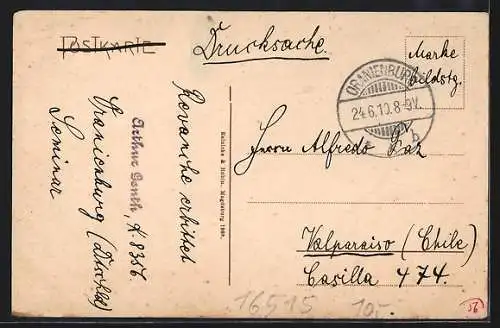 POSTKARTE
Drucksache.
Marke
Bildstg.
ORANIENBURG
24.6.10.8-9V.
b
Herrn Alfredo Paz
Valparaiso (Chile)
Casilla 474.
Revanche erbittet
Arthur Genth, K. 8356.
Oranienburg (Dtschld)
Seminar
Reinicke & Rubin, Magdeburg 1909.
16515 10.-